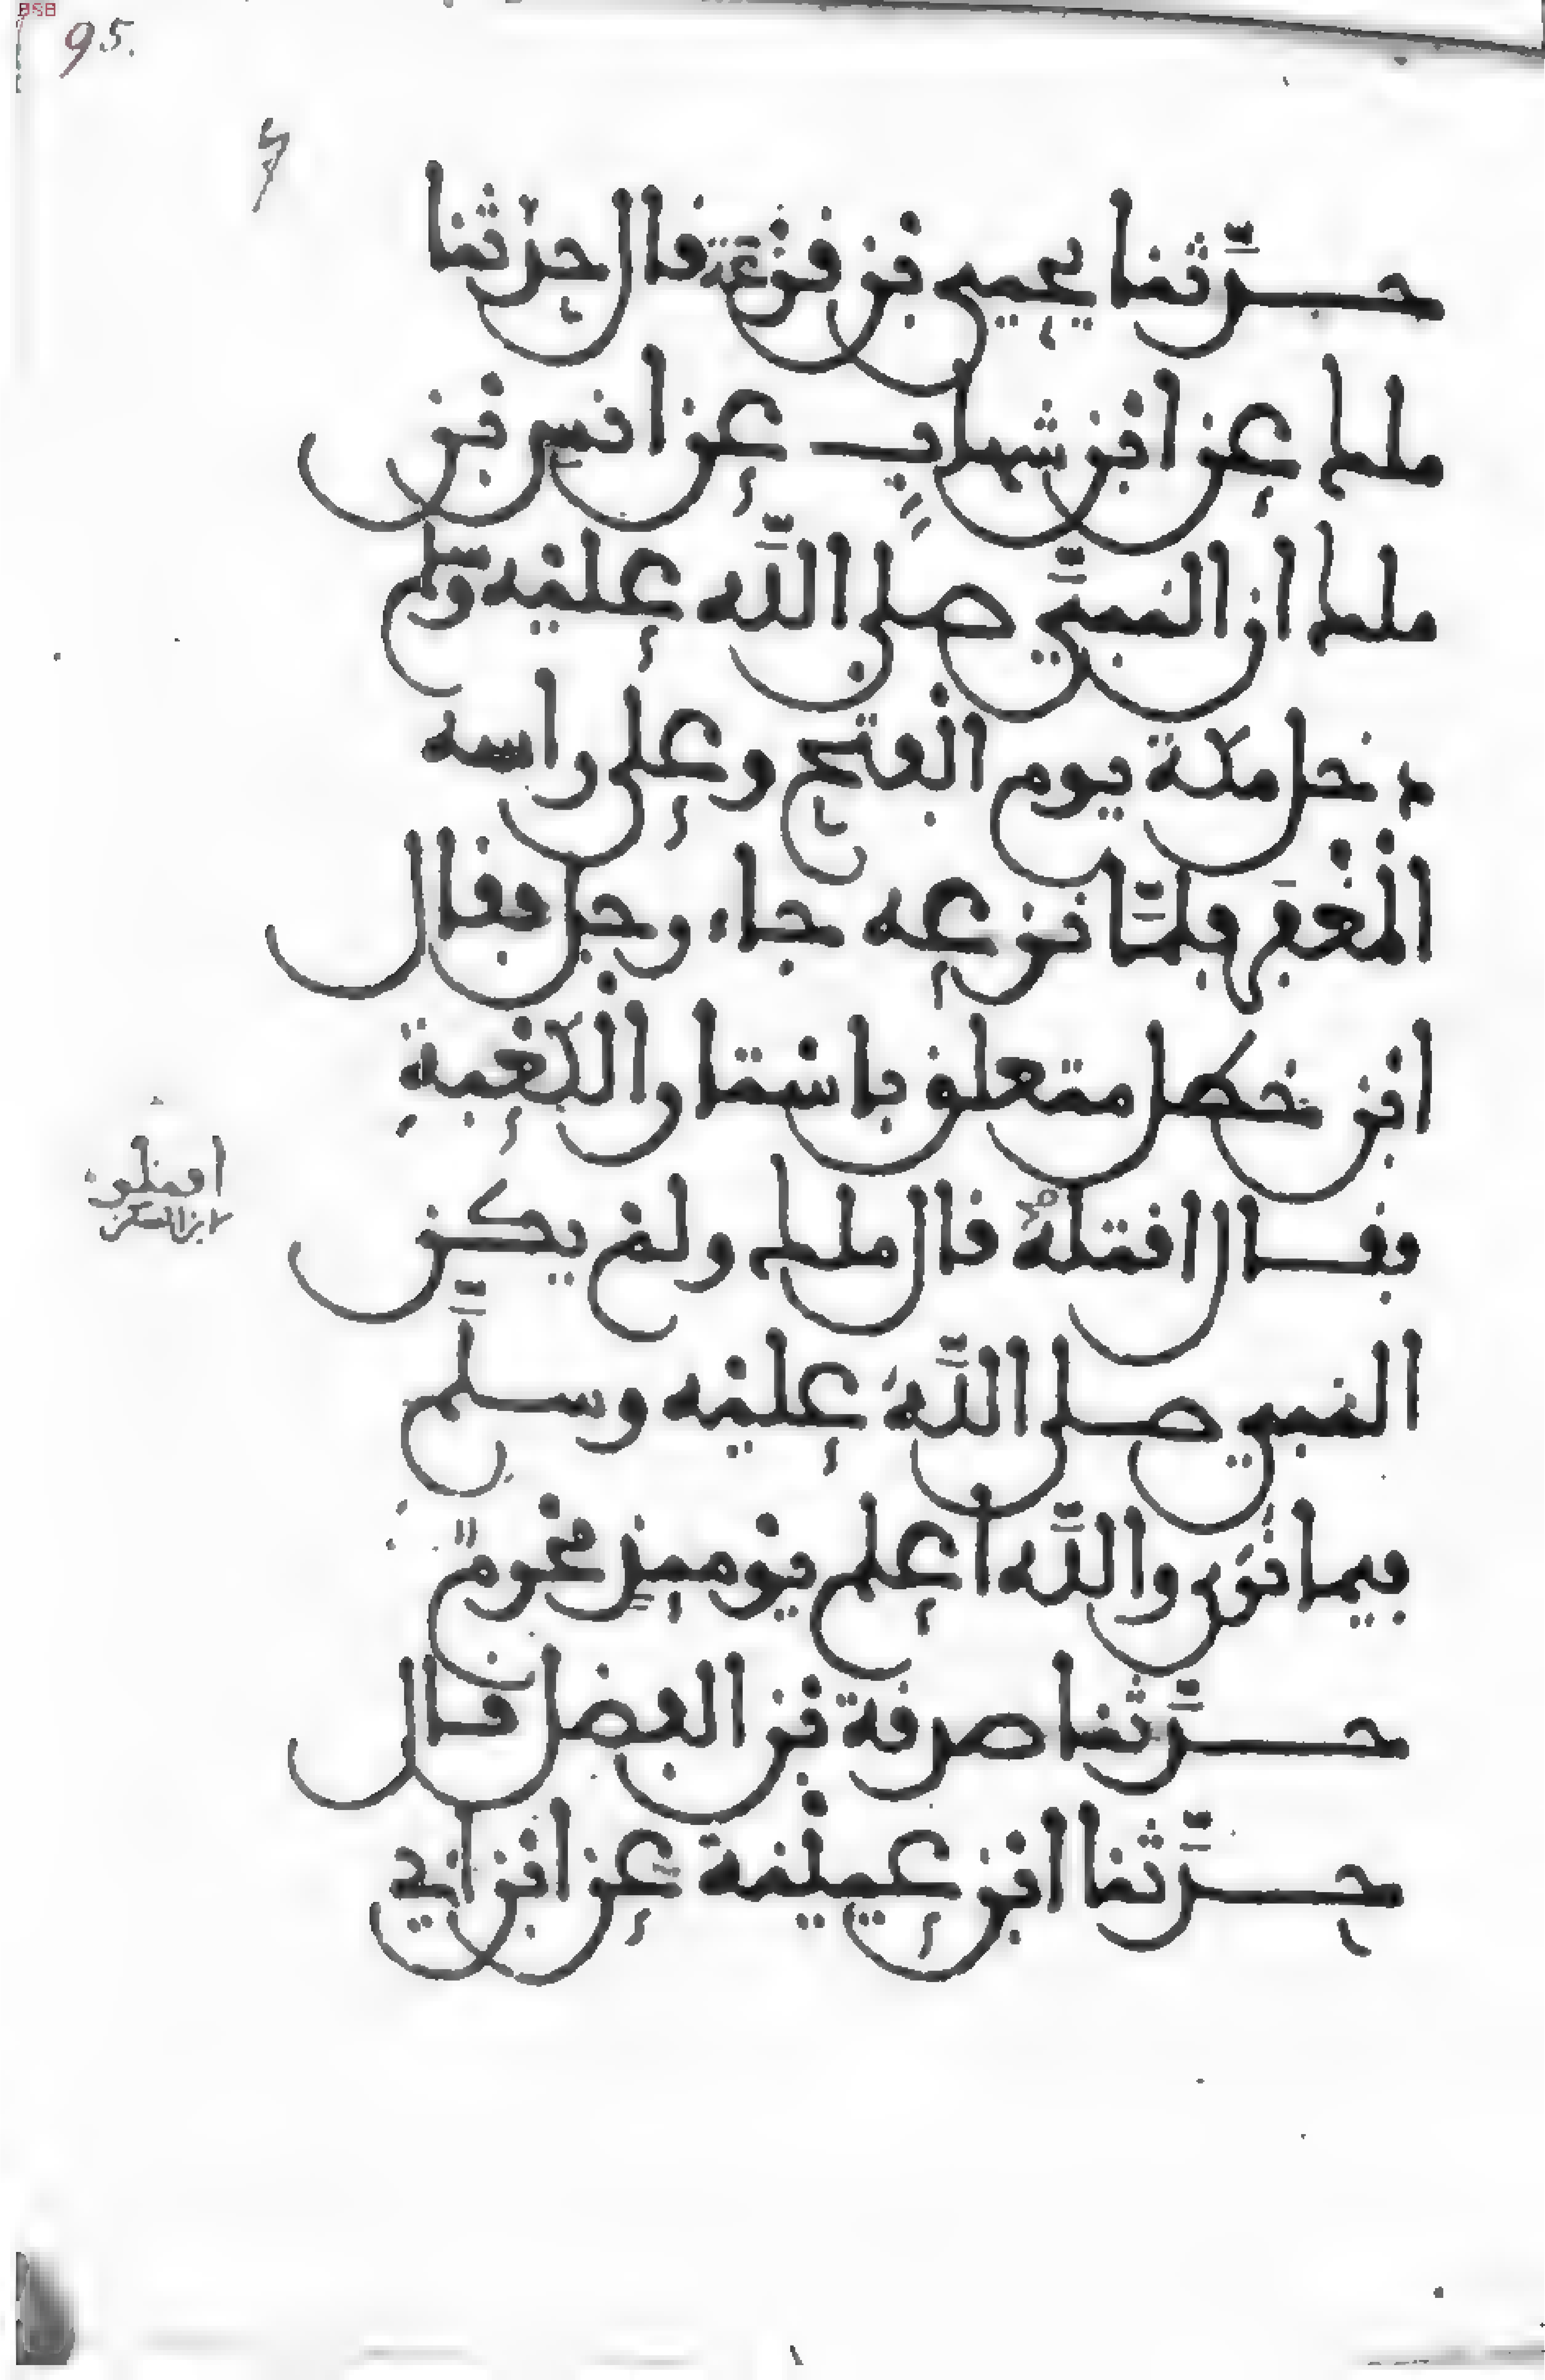 95.
حدثنا يحيى بن قزعة قال حدثنا
ملك عن ابن شهاب عن انس بن
ملك ان النبي صلى الله عليه وسلم
دخل مكة يوم الفتح وعلى راسه
المغفر فلما نزعه جاء رجل فقال
ابن خطل متعلق باستار الكعبة
فقال اقتله قال ملك ولم يكن
النبي صلى الله عليه وسلم
فيما نرى والله اعلم يومئذ محرما
حدثنا صدقة بن الفضل قال
حدثنا ابن عيينة عن ابن ابي
اقتلوه
لابن السكن
BSB